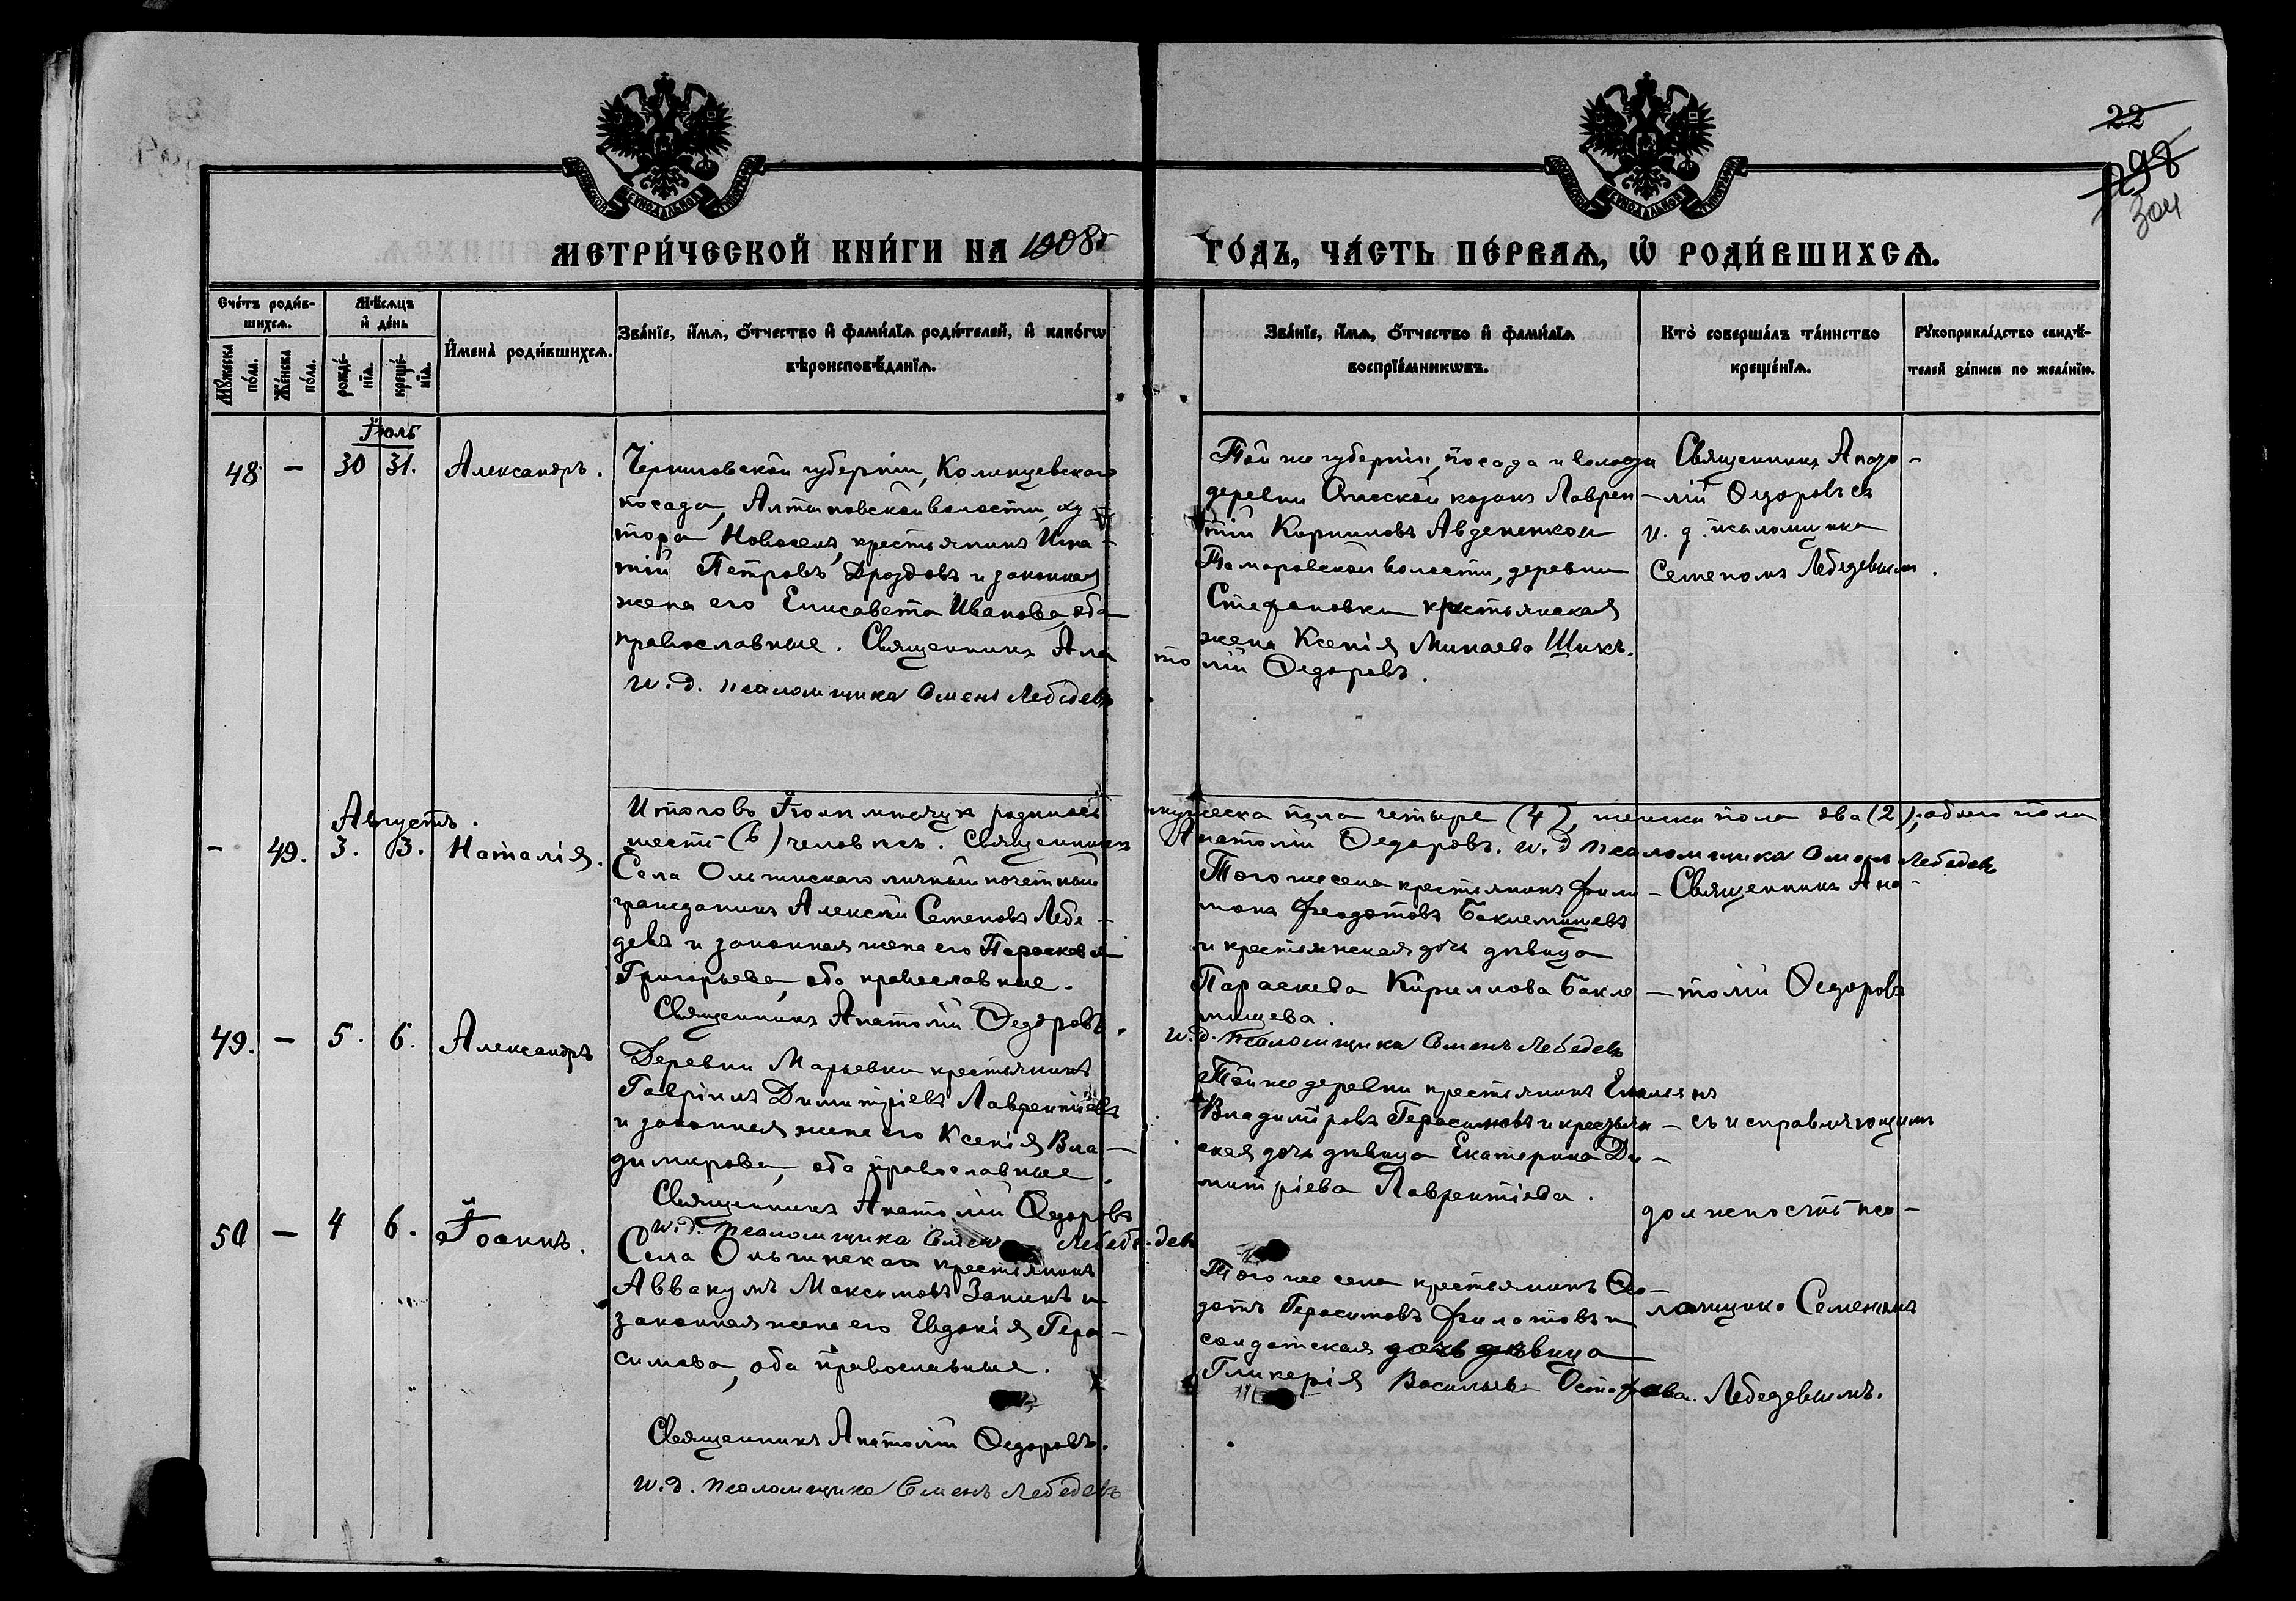 22
298
304
МЕТРИ́ЧЕСКОЙ КНИ́ГИ НА 1908
ГО́ДЪ, ЧА́СТЬ ПЕ́РВАѦ, Ѡ҆ РОДИ́ВШИХСѦ.
Сче́тъ роди́в-
шихсѧ.
Мѣ́сѧцъ
и҆ де́нь
Мꙋ́жеска по́ла.
Же́нска по́ла.
рожде́-нїѧ.
креще́-нїѧ.
И҆мена̀ роди́вшихсѧ.
Зва́нїе, и҆́мѧ, ѻ҆́тчество и҆ фамі́лїѧ роди́телей, и҆ како́гѡ
вѣроисповѣ́данїѧ.
Зва́нїе, и҆́мѧ, ѻ҆́тчество и҆ фамі́лїѧ
воспрїе́мникѡвъ.
Кто̀ соверша́лъ та́инство
креще́нїѧ.
Рꙋкоприкла́дство свидѣ́-
телей за́писи по жела́нїю.
Іюль
48 — 30 31. Александръ.
Черниговской губерніи, Колинцевскаго
посада, Алтыновской волости, ху-
тора Новоселъ, крестьянинъ Игна-
тій Петровъ Дроздовъ и законная
жена его Елисавета Иванова, оба
православные. Священникъ Ана
и.д. псаломщика Семенъ Лебедевъ
Той же губерніи, посада и волости
деревни Спасской козакъ Лаврен-
тій Кирилловъ Авдененко и
волости, деревни
Стефановки крестьянская
жена Ксенія Минаева Шикъ.
толій Ѳедоровъ.
Священникъ Анато-
лій Ѳедоровъ съ
и. д. псаломщика
Семеномъ Лебедевымъ.
Итого въ Іюлѣ мѣсяцѣ родилось
мужеска пола четыре (4), женска пола два (2), обоего пола
шесть (6) человѣкъ. Священникъ
Анатолій Ѳедоровъ. и.д псаломщика Семенъ Лебедевъ
Августъ.
— 49. 3. 3. Наталія.
Села Ольгинскаго личный почетный
гражданинъ Алексѣй Семеновъ Лебе-
девъ и законная жена его Параскева
Григорьева, оба православные.
Священникъ Анатолій Ѳедоровъ.
Того же села крестьянинъ Фили-
монъ Феодотовъ Баклемишевъ
и крестьянская дочь дѣвица
Параскева Кириллова Бакле-
мишева.
и.д. псаломщика Семенъ Лебедевъ
Священникъ Ана-
толій Ѳедоровъ
49. — 5. 6. Александръ
Деревни Марьевки крестьянинъ
Гавріилъ Димитріевъ Лаврентіевъ
и законная жена его Ксенія Вла-
димирова, оба православные.
Священникъ Анатолій Ѳедоровъ
и.д. псаломщика Семенъ Лебедевъ
Той же деревни крестьянинъ
Владиміровъ Герасимовъ и крестьян-
ская дочь дѣвица Екатерина Ди-
митріева Лаврентіева.
съ исправляющимъ
должность пса-
50 — 4 6. Іоаннъ.
Села Ольгинскаго крестьянинъ
Аввакумъ Максимовъ Заника и
законная жена его Евдокія Гера-
симова, оба православные.
Священникъ Анатолій Ѳедоровъ.
и.д. псаломщика Семенъ Лебедевъ
Того же села крестьянинъ Ѳео-
дотъ Герасимовъ Филатовъ и
солдатская дочь дѣвица
Гликерія Васильева Остафьева.
ломщика Семеномъ
Лебедевымъ.